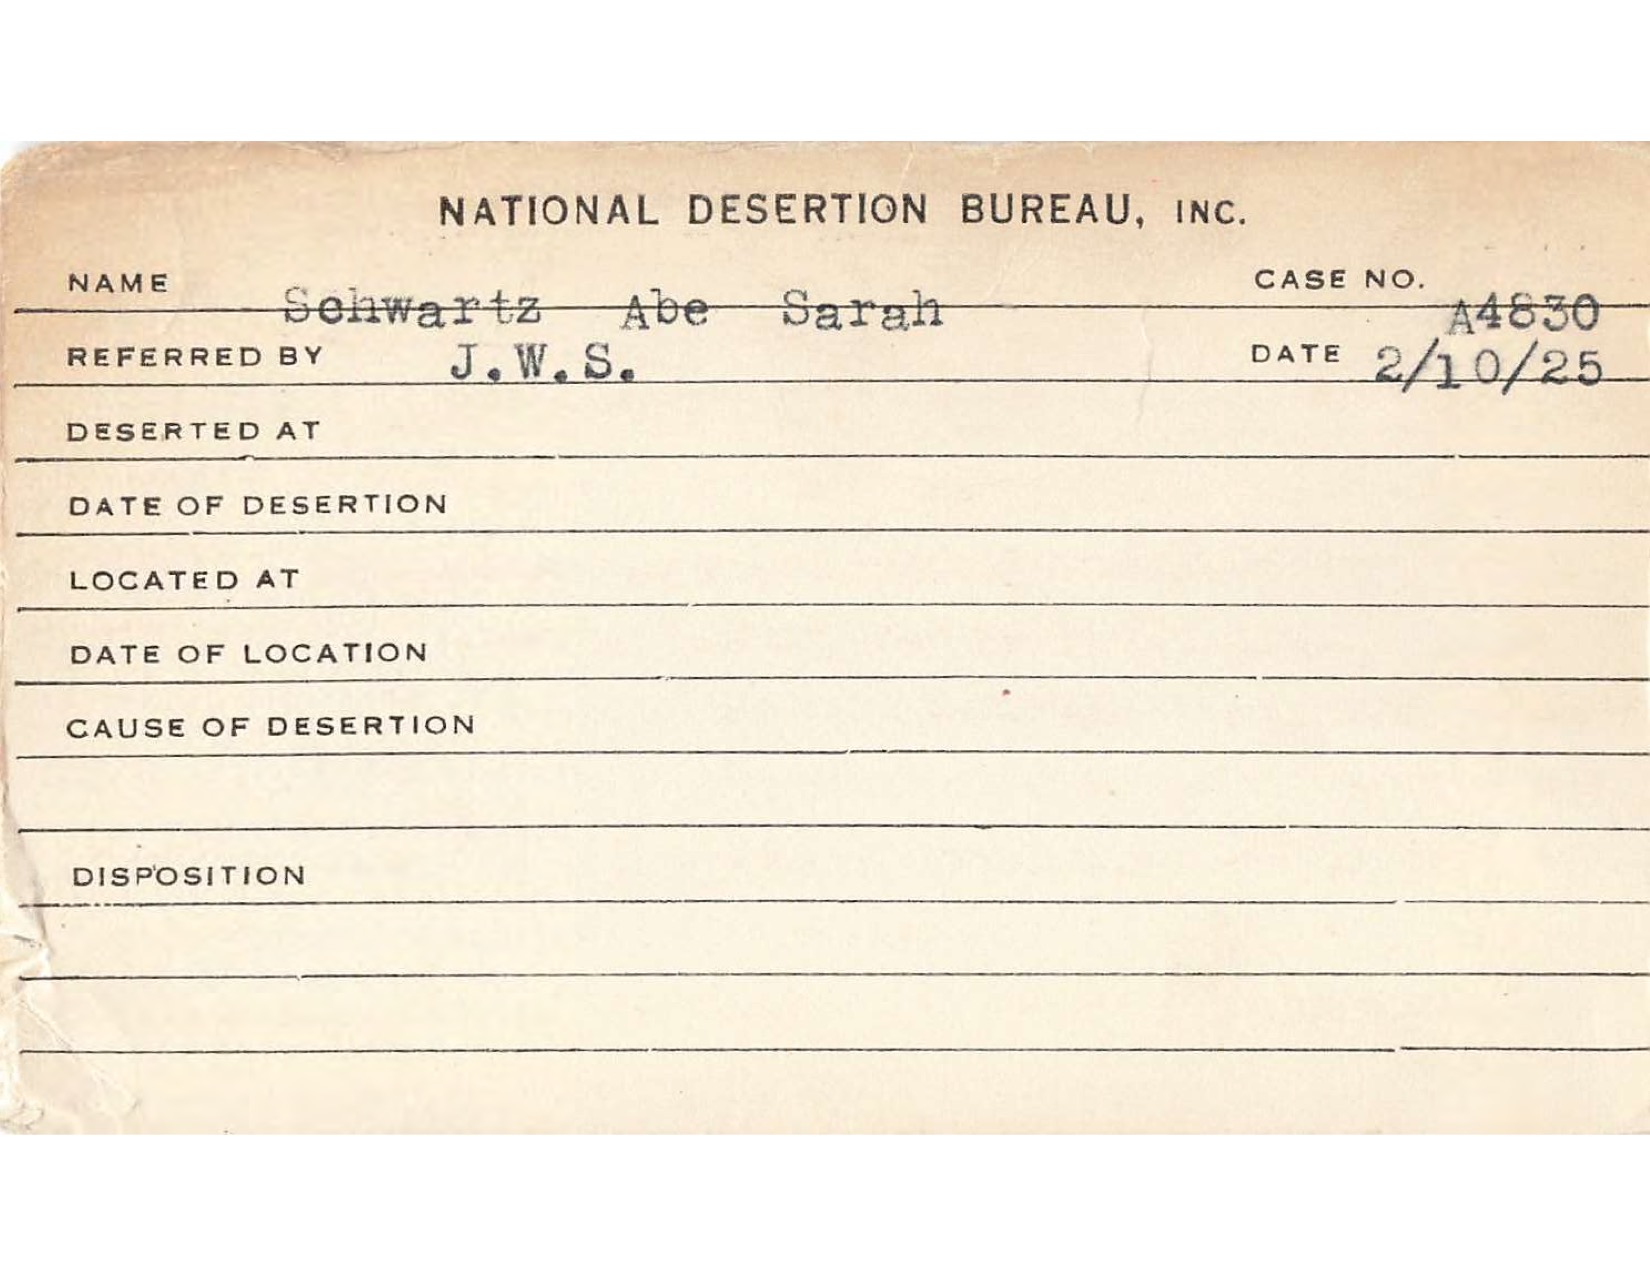 NATIONAL DESERTION BUREAU, INC.
NAME Schwartz Abe Sarah CASE NO. A4830
REFERRED BY J.W.S. DATE 2/10/25
DESERTED AT
DATE OF DESERTION
LOCATED AT
DATE OF LOCATION
CAUSE OF DESERTION
DISPOSITION